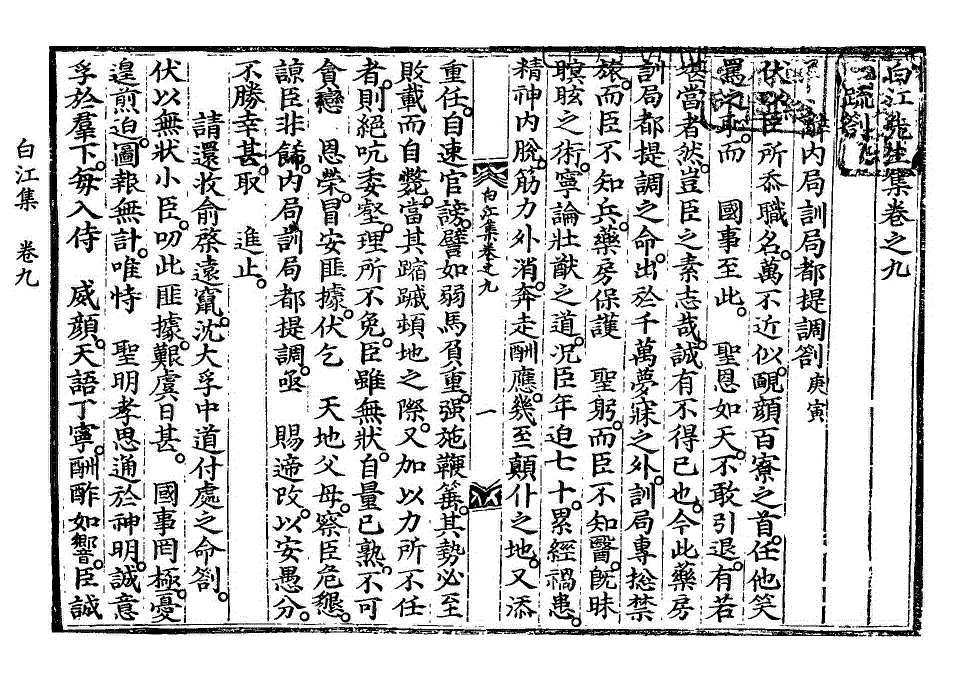 白江先生集卷之九
疏箚
辭內局訓局都提調箚庚寅
伏以臣所忝職名。萬不近似。靦顔百寮之首。任他笑
罵。而 國事至此。 聖恩如天。不敢引退。有若
堪當者然。豈臣之素志哉。誠有不得已也。今此藥房
訓局都提調之命。出於千萬夢寐之外。訓局專摠禁
旅。而臣不知兵。藥房保護 聖躬。而臣不知醫。旣昧
瞑眩之術。寧論壯猷之道。況臣年迫七十。累經禍患。
精神內脫。筋力外消。奔走酬應。幾至顚仆之地。又添
白江集卷之九
一
重任。自速官謗。譬如弱馬負重。强施鞭箠。其勢必至
敗載而自斃。當其蹜蹴頓地之際。又加以力所不任
者。則絕吭委壑。理所不免。臣雖無狀。自量已熟。不可
貪戀 恩榮。冒安匪據。伏乞 天地父母。察臣危懇。
諒臣非餙。內局訓局都提調。亟 賜遞改。以安愚分。
不勝幸甚。取 進止。
請還收俞棨遠竄。沈大孚中道付處之命箚。
伏以無狀小臣。叨此匪據。艱虞日甚。 國事罔極。憂
遑煎迫。圖報無計。唯恃 聖明孝思通於神明。誠意
孚於羣下。每入侍 威顔。天語丁寧。酬酢如響。臣誠
白江集 卷九